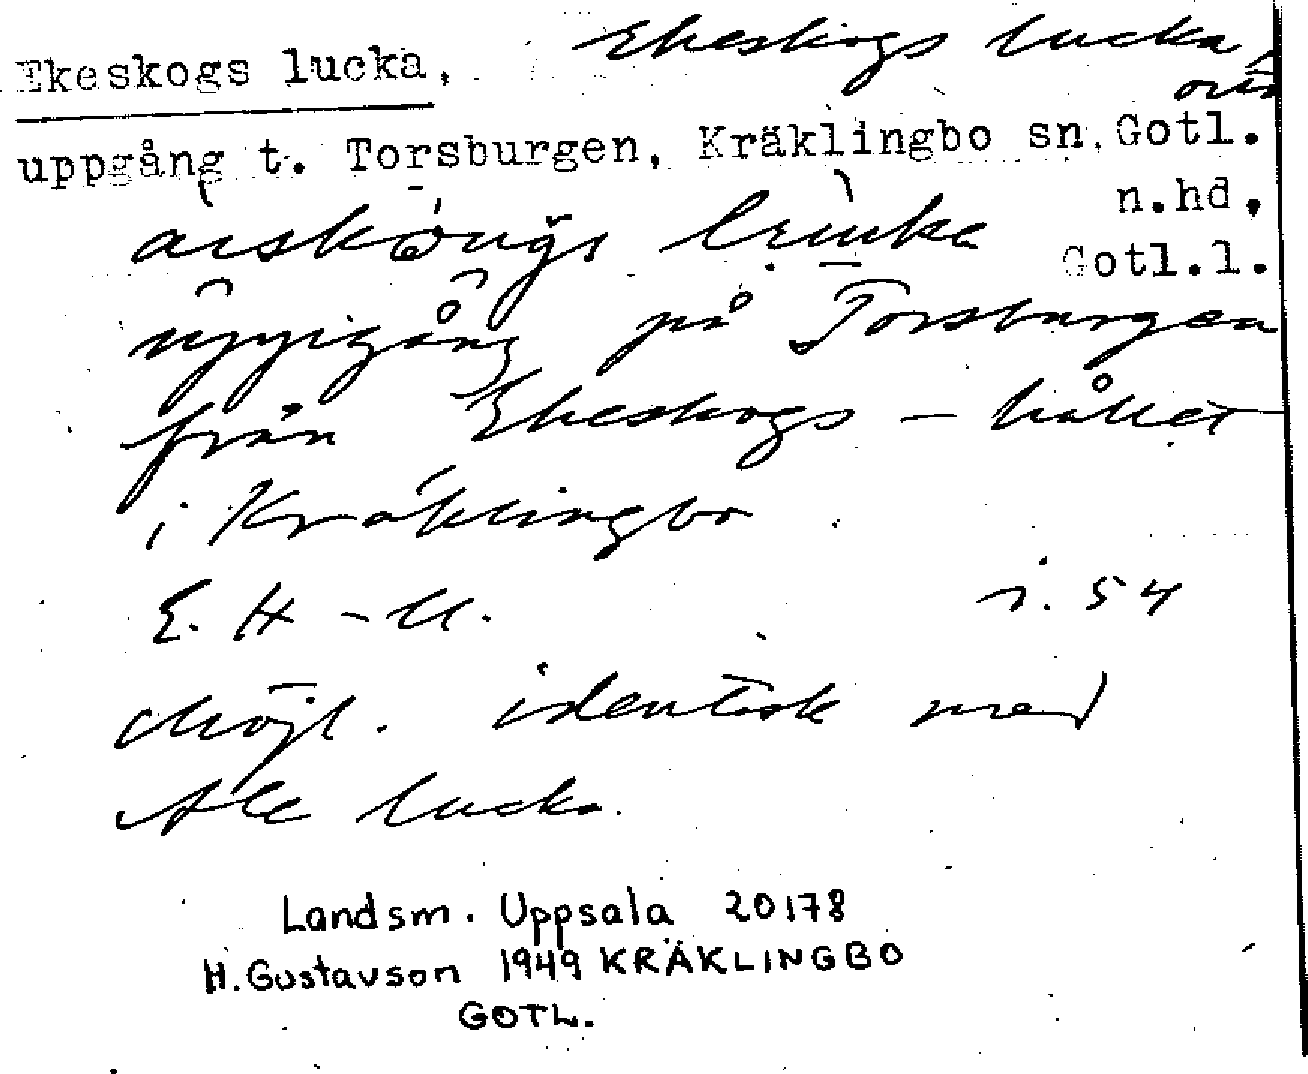 Ekeskogs lucka, Ekeskogs lucka,
uppgång t. Torsburgen, Kräklingbo sn, Gotl.
n.hd,
Gotl.l.
uppgång på Torsburgen
från Ekeskogs - hållet
i Kräklingbo
E. H - U. i. 54
Möjl. identisk med
Ale lucka
Landsm. Uppsala 20178
H. Gustavson 1949 KRÄKLINGBO
GOTL.